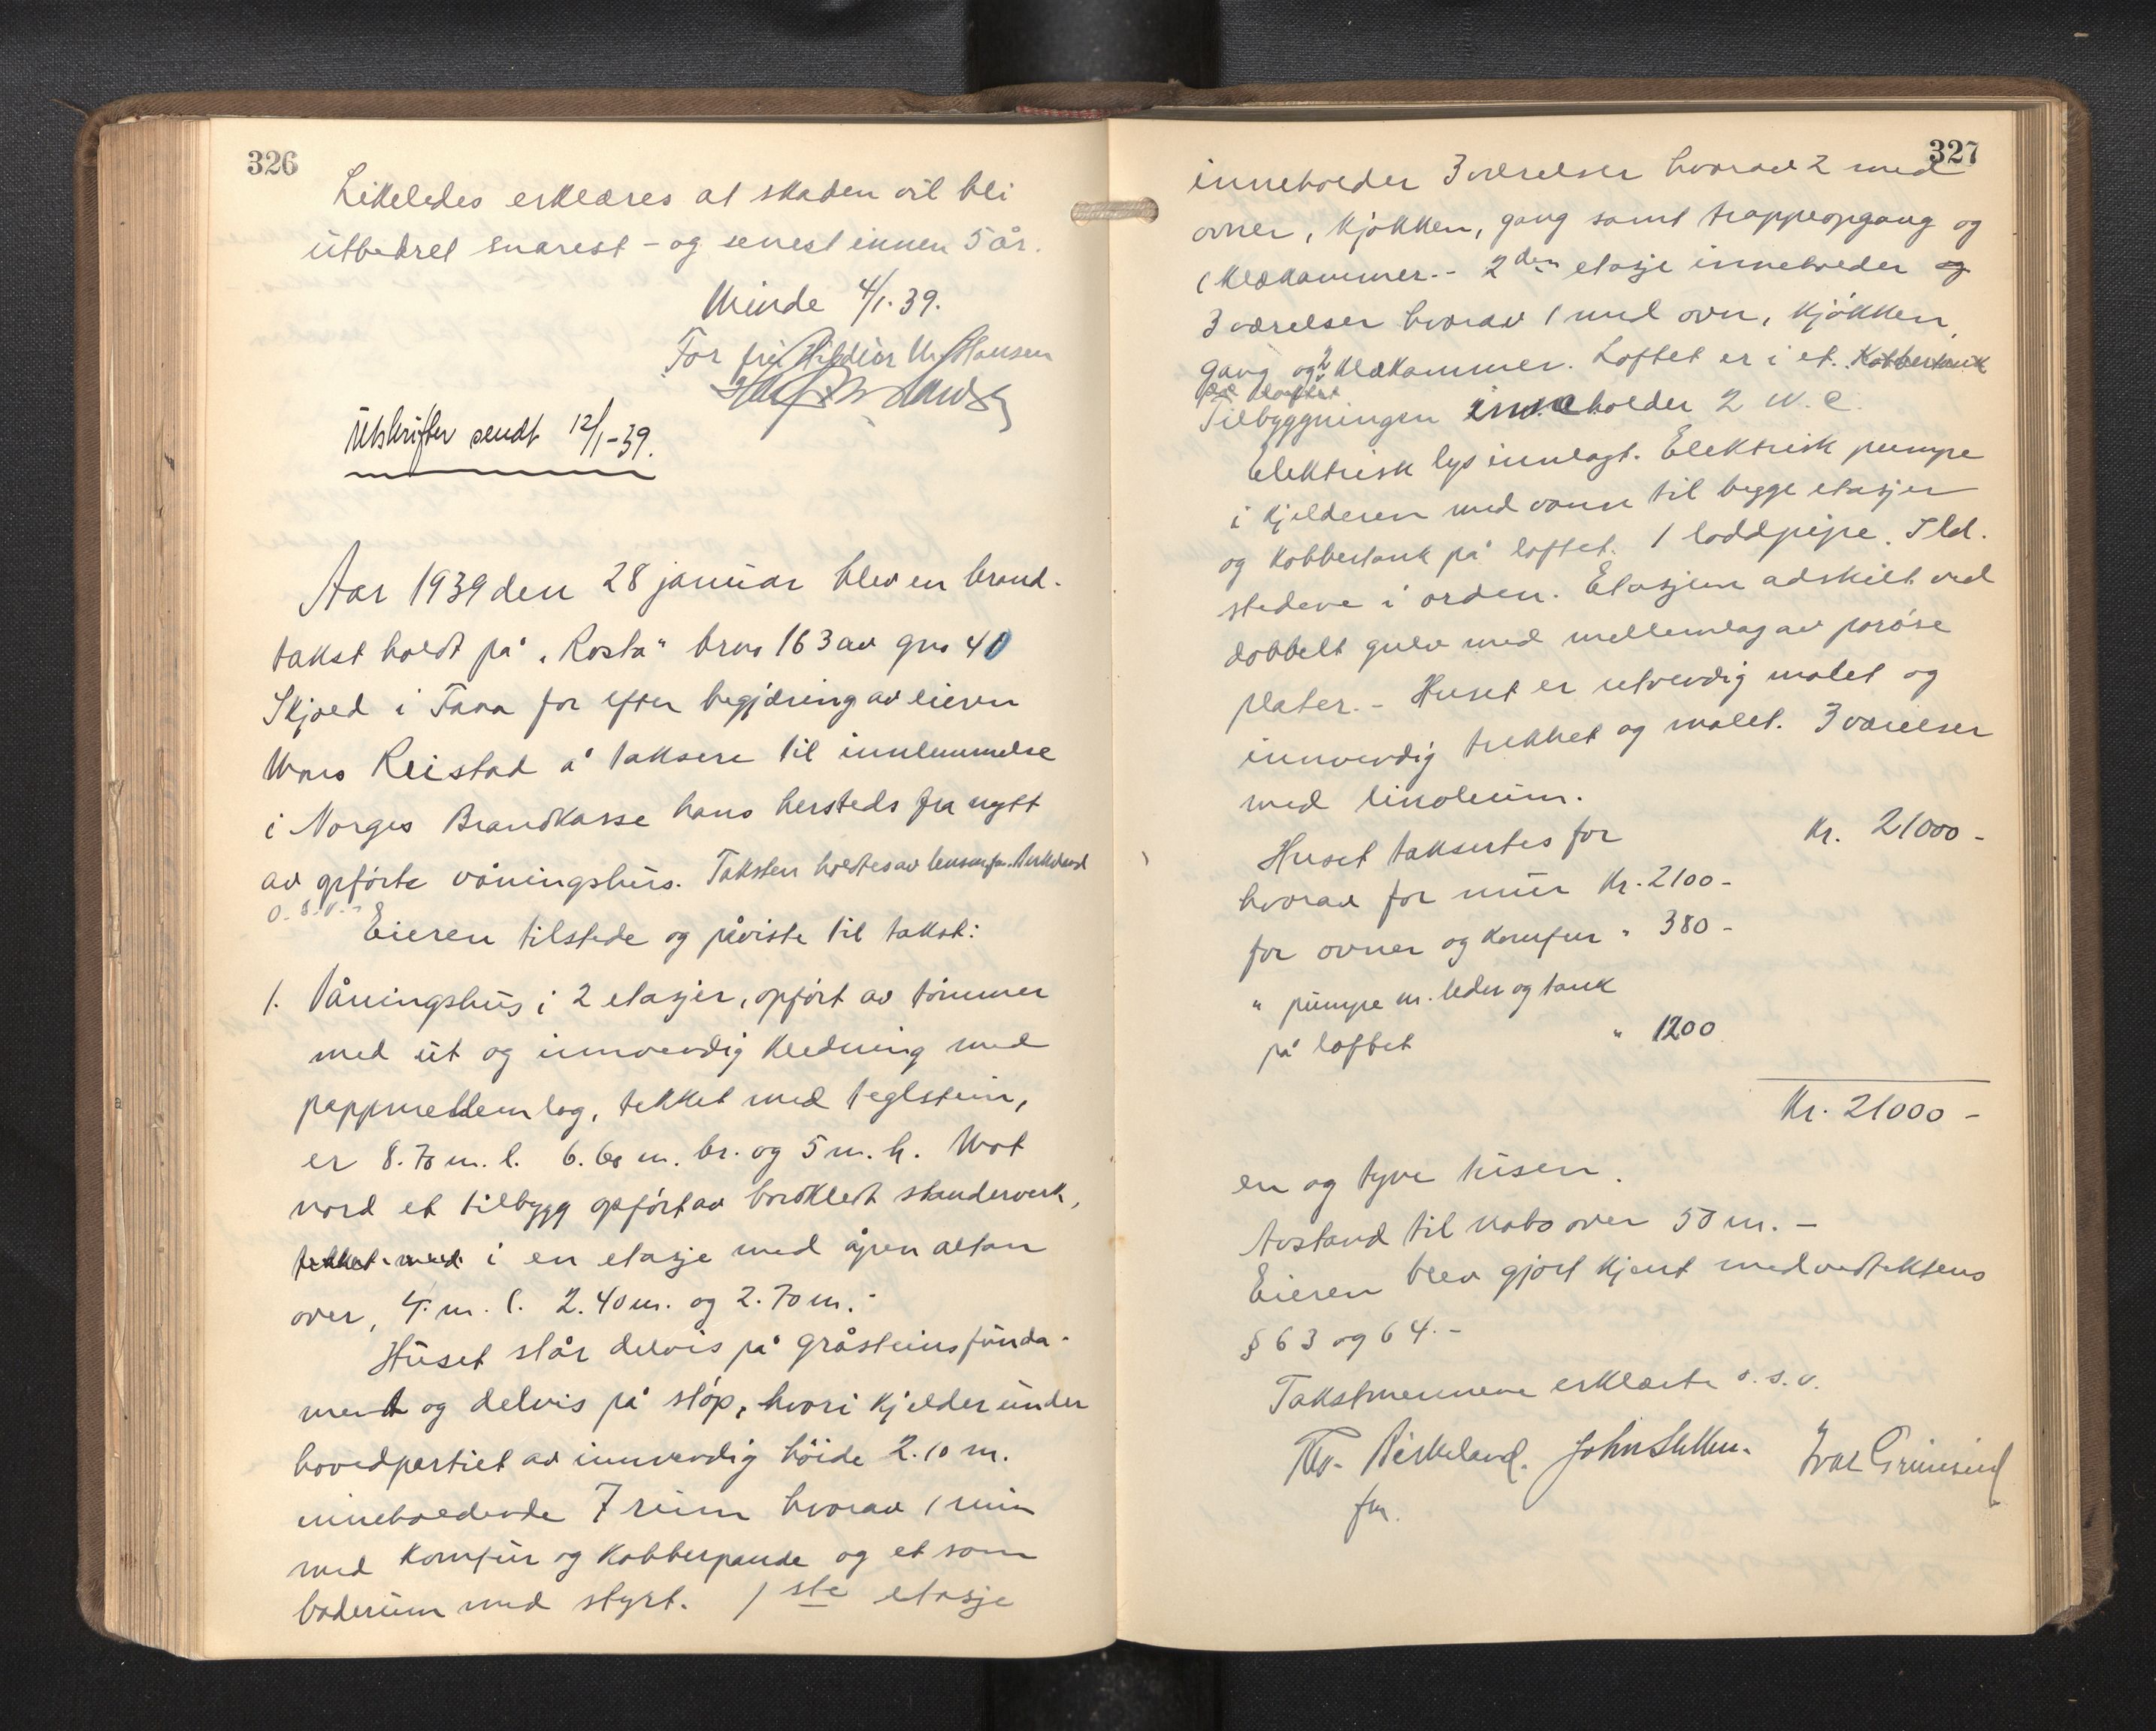 326
Likeledes erklæres at skaden vil bli
utbedret snarest - og senest innen 5 år.
Minde 4/1. 39.
For frk Hansen
Utskrifter sendt 12/1-39.
Aar 1939 den 28 januar blev en brand-
takst holdt på "Rosta" brno 163 av gno 40
Skjold i Fana for efter begjæring av eieren
Mons Reistad å taksere til innlemmelse
i Norges Brandkasse hans hersteds fra nytt
av opførte våningshus. Taksten holdtes av lensm.fm. Birkeland
o.s.v.-
Eieren tilstede og påviste til takst:
1. Våningshus i 2 etasjer, opført av tømmer
med ut og innvendig kledning med
pappmellemlag, tekket med teglstein,
er 8.70 m. l. 6.60 m. br. og 5 m. h. Mot
nord et tilbygg opført av bordkledt standerverk,
tekket med i en etasje med åpen altan
over, 4. m. l. 2.40 m. og 2.70 m.-
Huset står delvis på gråsteinsfunda-
ment og delvis på støp, hvori kjelder under
hovedpartiet av innvendig høide 2.10 m.
inneholdende 7 rum hvorav 1 rum
med komfur og kobberpande og et som
baderum med styrt. 1ste etasje
327
inneholder 3 værelser hvorav 2 med
ovner, kjøkken, gang samt trappeopgang og
1 klækammer.- 2den etasje inneholder og
3 værelser hvorav 1 med ovn, kjøkken,
gang og 2 klækammer. Loftet er i et. Kobbertank
på loftet
Tilbyggningen inneholder 2 W.C.
Elektrisk lys innlagt. Elektrisk pumpe
i kjelderen med vann til begge etasjer
og kobbertank på loftet. 1 loddpipe. Ild-
stedene i orden. Etasjen adskilt ved
dobbelt gulv med mellemlag av porøse
plater.- Huset er utvendig malet og
innvendig trekket og malet. 3 værelser
med linoleum.
Huset taksertes for kr. 21000-
hvorav for mur kr. 2100-
for ovner og komfur " 380-
" pumpe m. leder og tank
på loftet " 1200
Kr. 21000-
en og tyve tusen.
Avstand til nabo over 50 m.-
Eieren blev gjort kjent med vedtektens
§ 63 og 64.-
Takstmennene erklærte o.s.v.
Birkeland. John Ivar
fm.